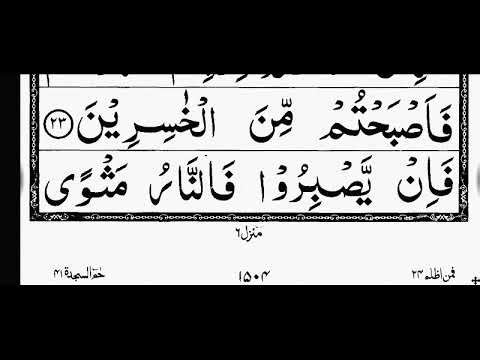 فَاَصْبَحْتُمْ مِّنَ الْخٰسِرِيْنَ ۝٢٣
فَاِنْ يَّصْبِرُوْا فَالنَّارُ مَثْوًى
منزل ٦
فمن اظلم ٢٤ ١٥٠٤ حٰمٓ السجدة ٤١